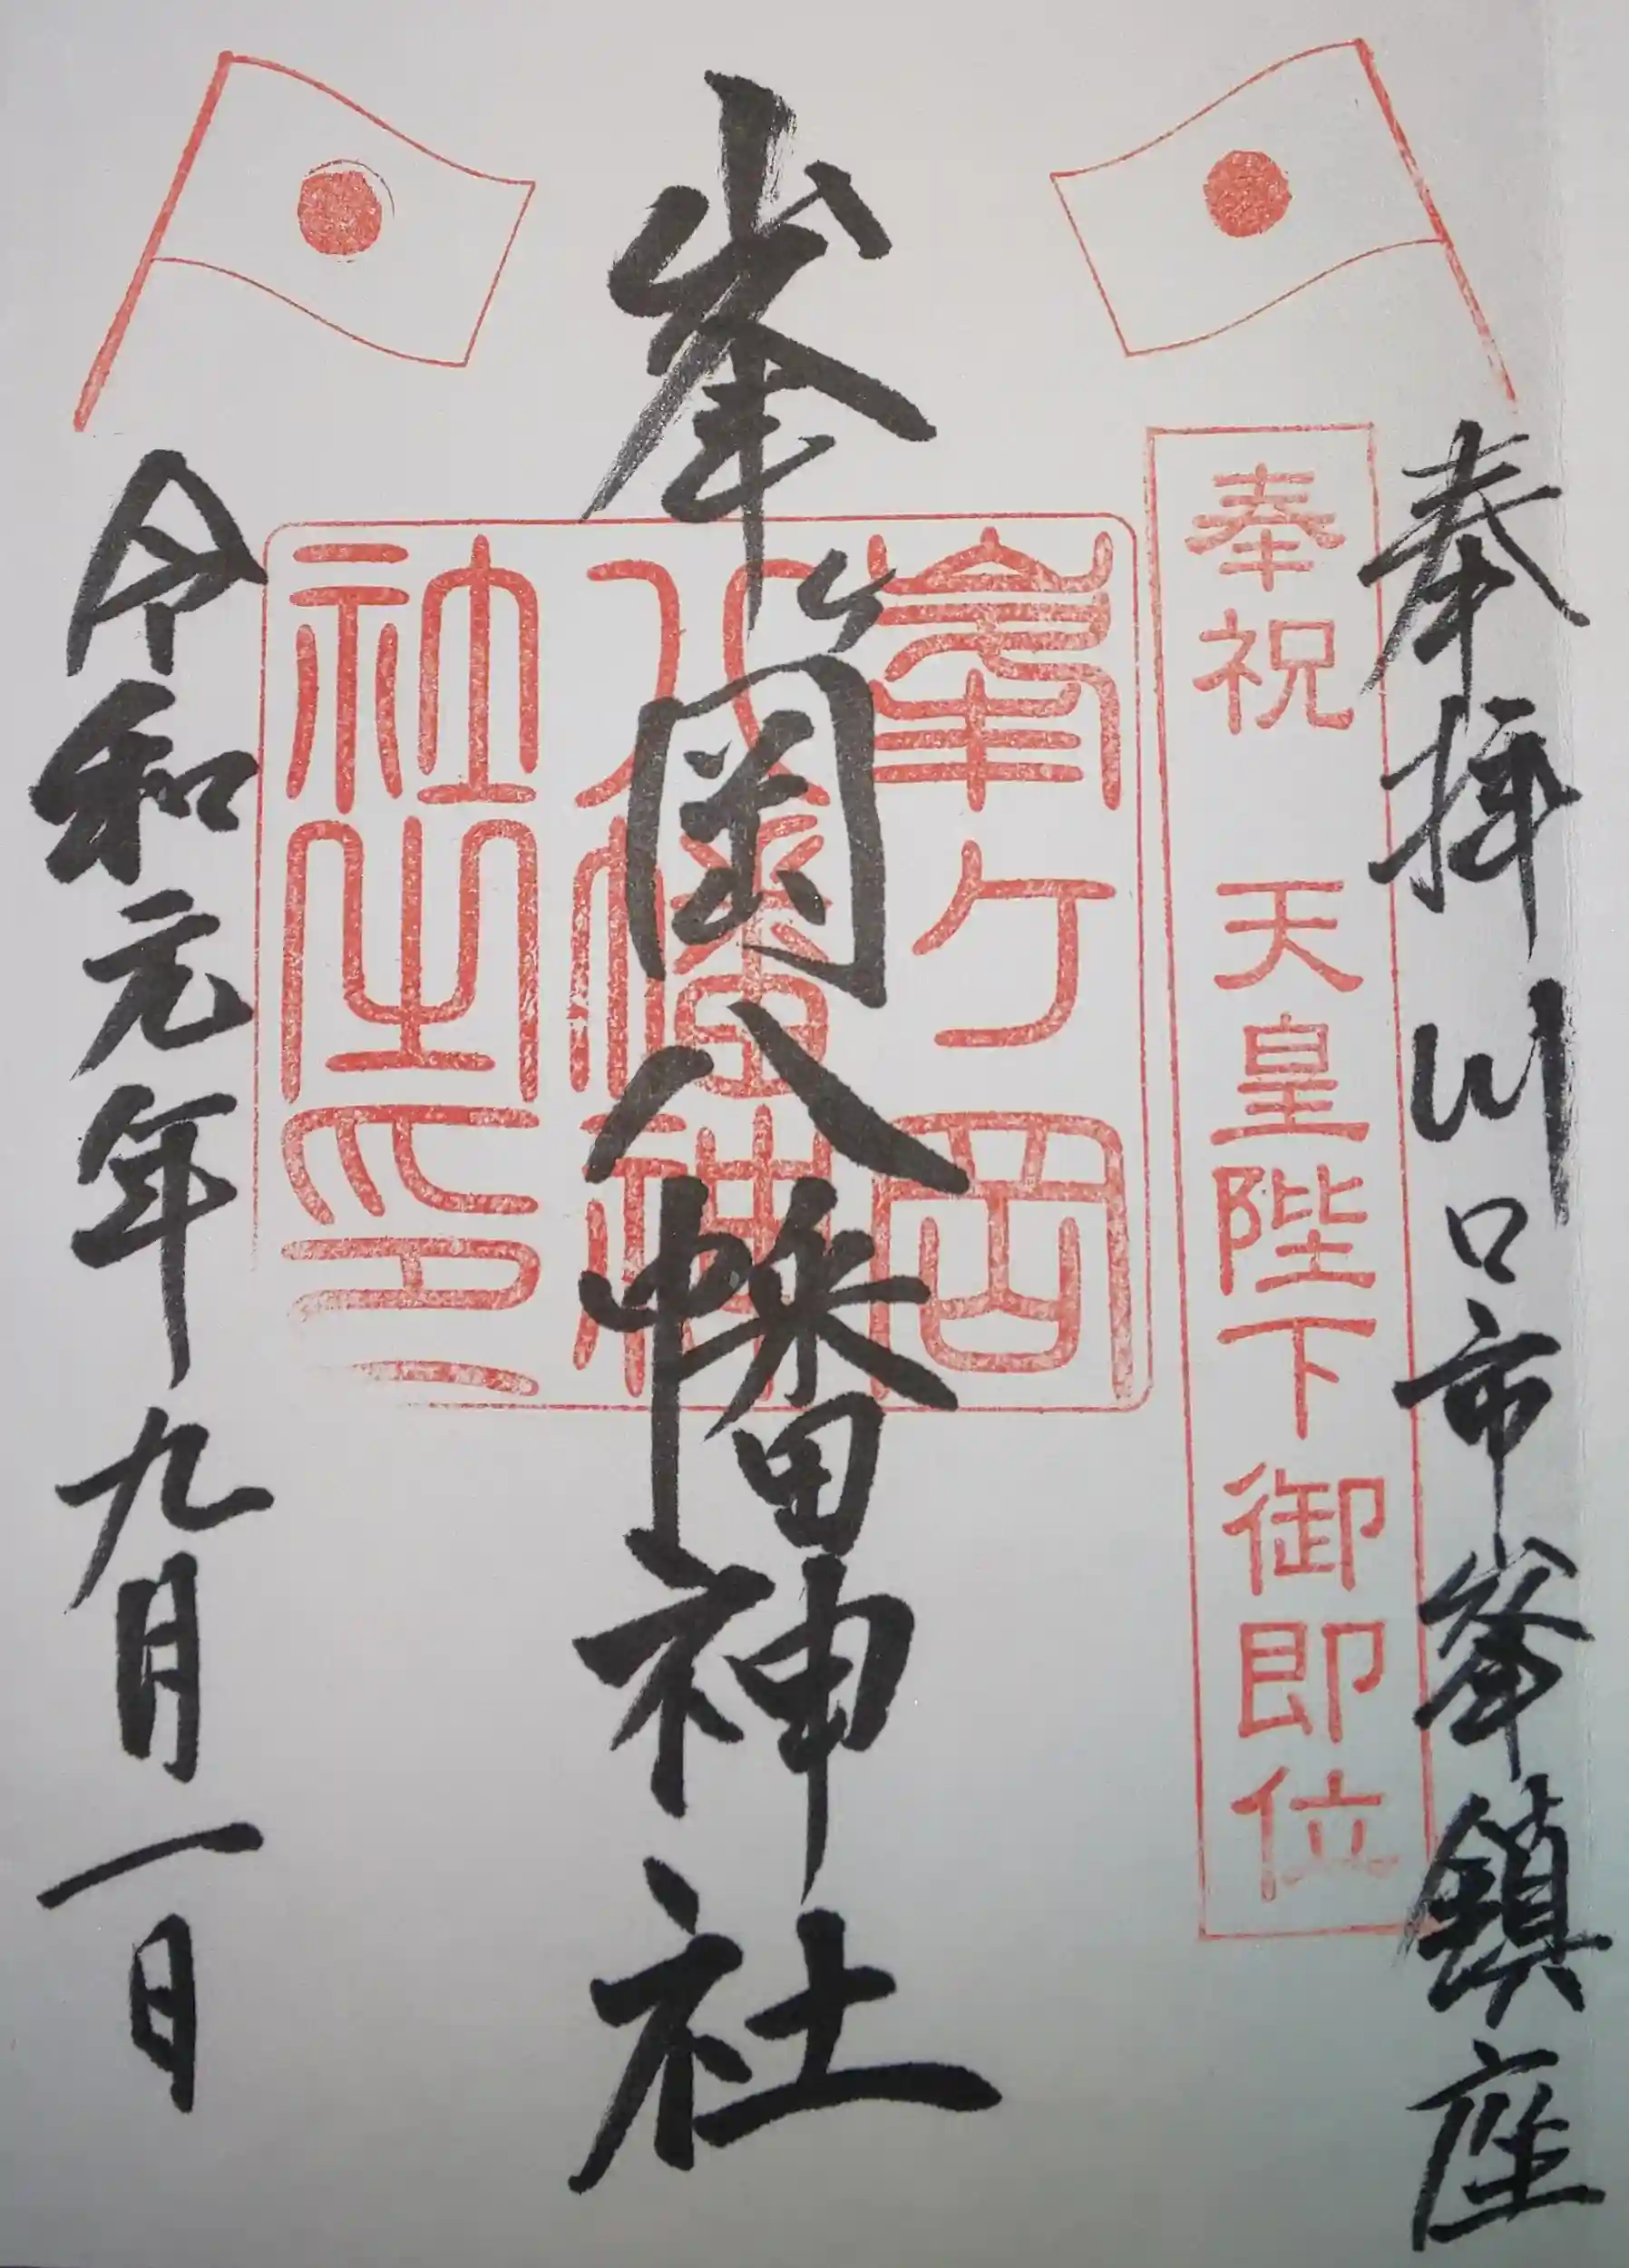 奉拝 川口市峯鎮座
奉祝 天皇陛下御即位
峯ヶ岡八幡神社
峯ヶ岡
八幡神
社之印
令和元年九月一日